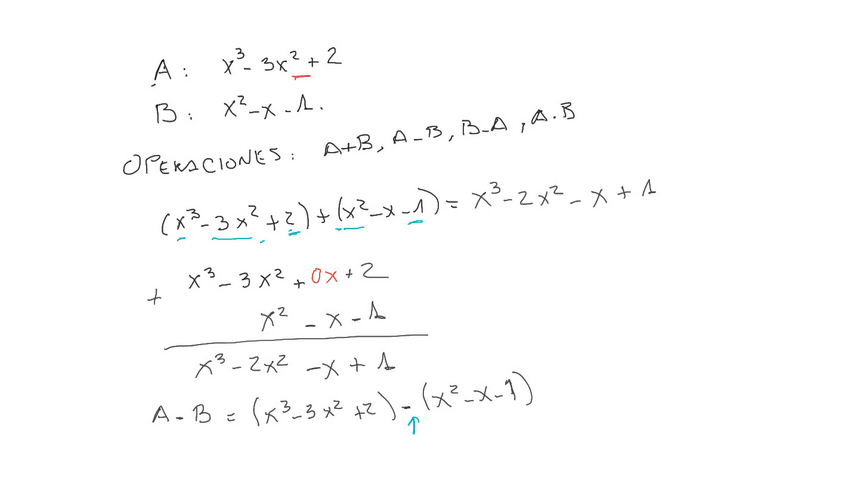 A: x³- 3x² + 2
B: x²-x-1.
OPERACIONES: A+B, A-B, B-A, A.B
(x³-3x²+2)+(x²-x-1)= x³-2x²-x+1
+ x³-3x²+0x+2
x² -x-1
x³-2x² -x+1
A-B = (x³-3x²+2)-(x²-x-1)
↑